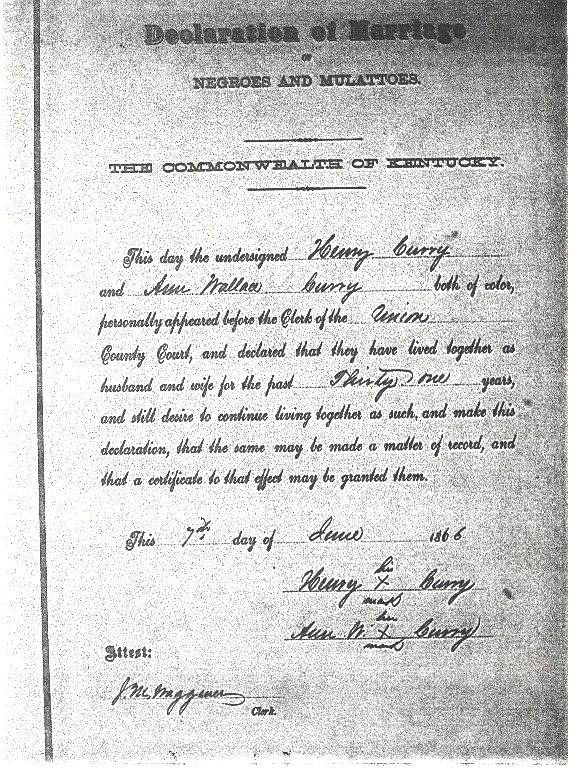 Declaration of Marriage
OF
NEGROES AND MULATTOES.
THE COMMONWEALTH OF KENTUCKY.
This day the undersigned Henry Curry
and Ann Wallace Curry both of color,
personally appeared before the Clerk of the Union
County Court, and declared that they have lived together as
husband and wife for the past Thirty one years,
and still desire to continue living together as such, and make this
declaration, that the same may be made a matter of record, and
that a certificate to that effect may be granted them.
This 7th day of June 1866
his
Henry X Curry
mark
her
Ann W. X Curry
mark
Attest:
J. M. Waggener
Clerk.